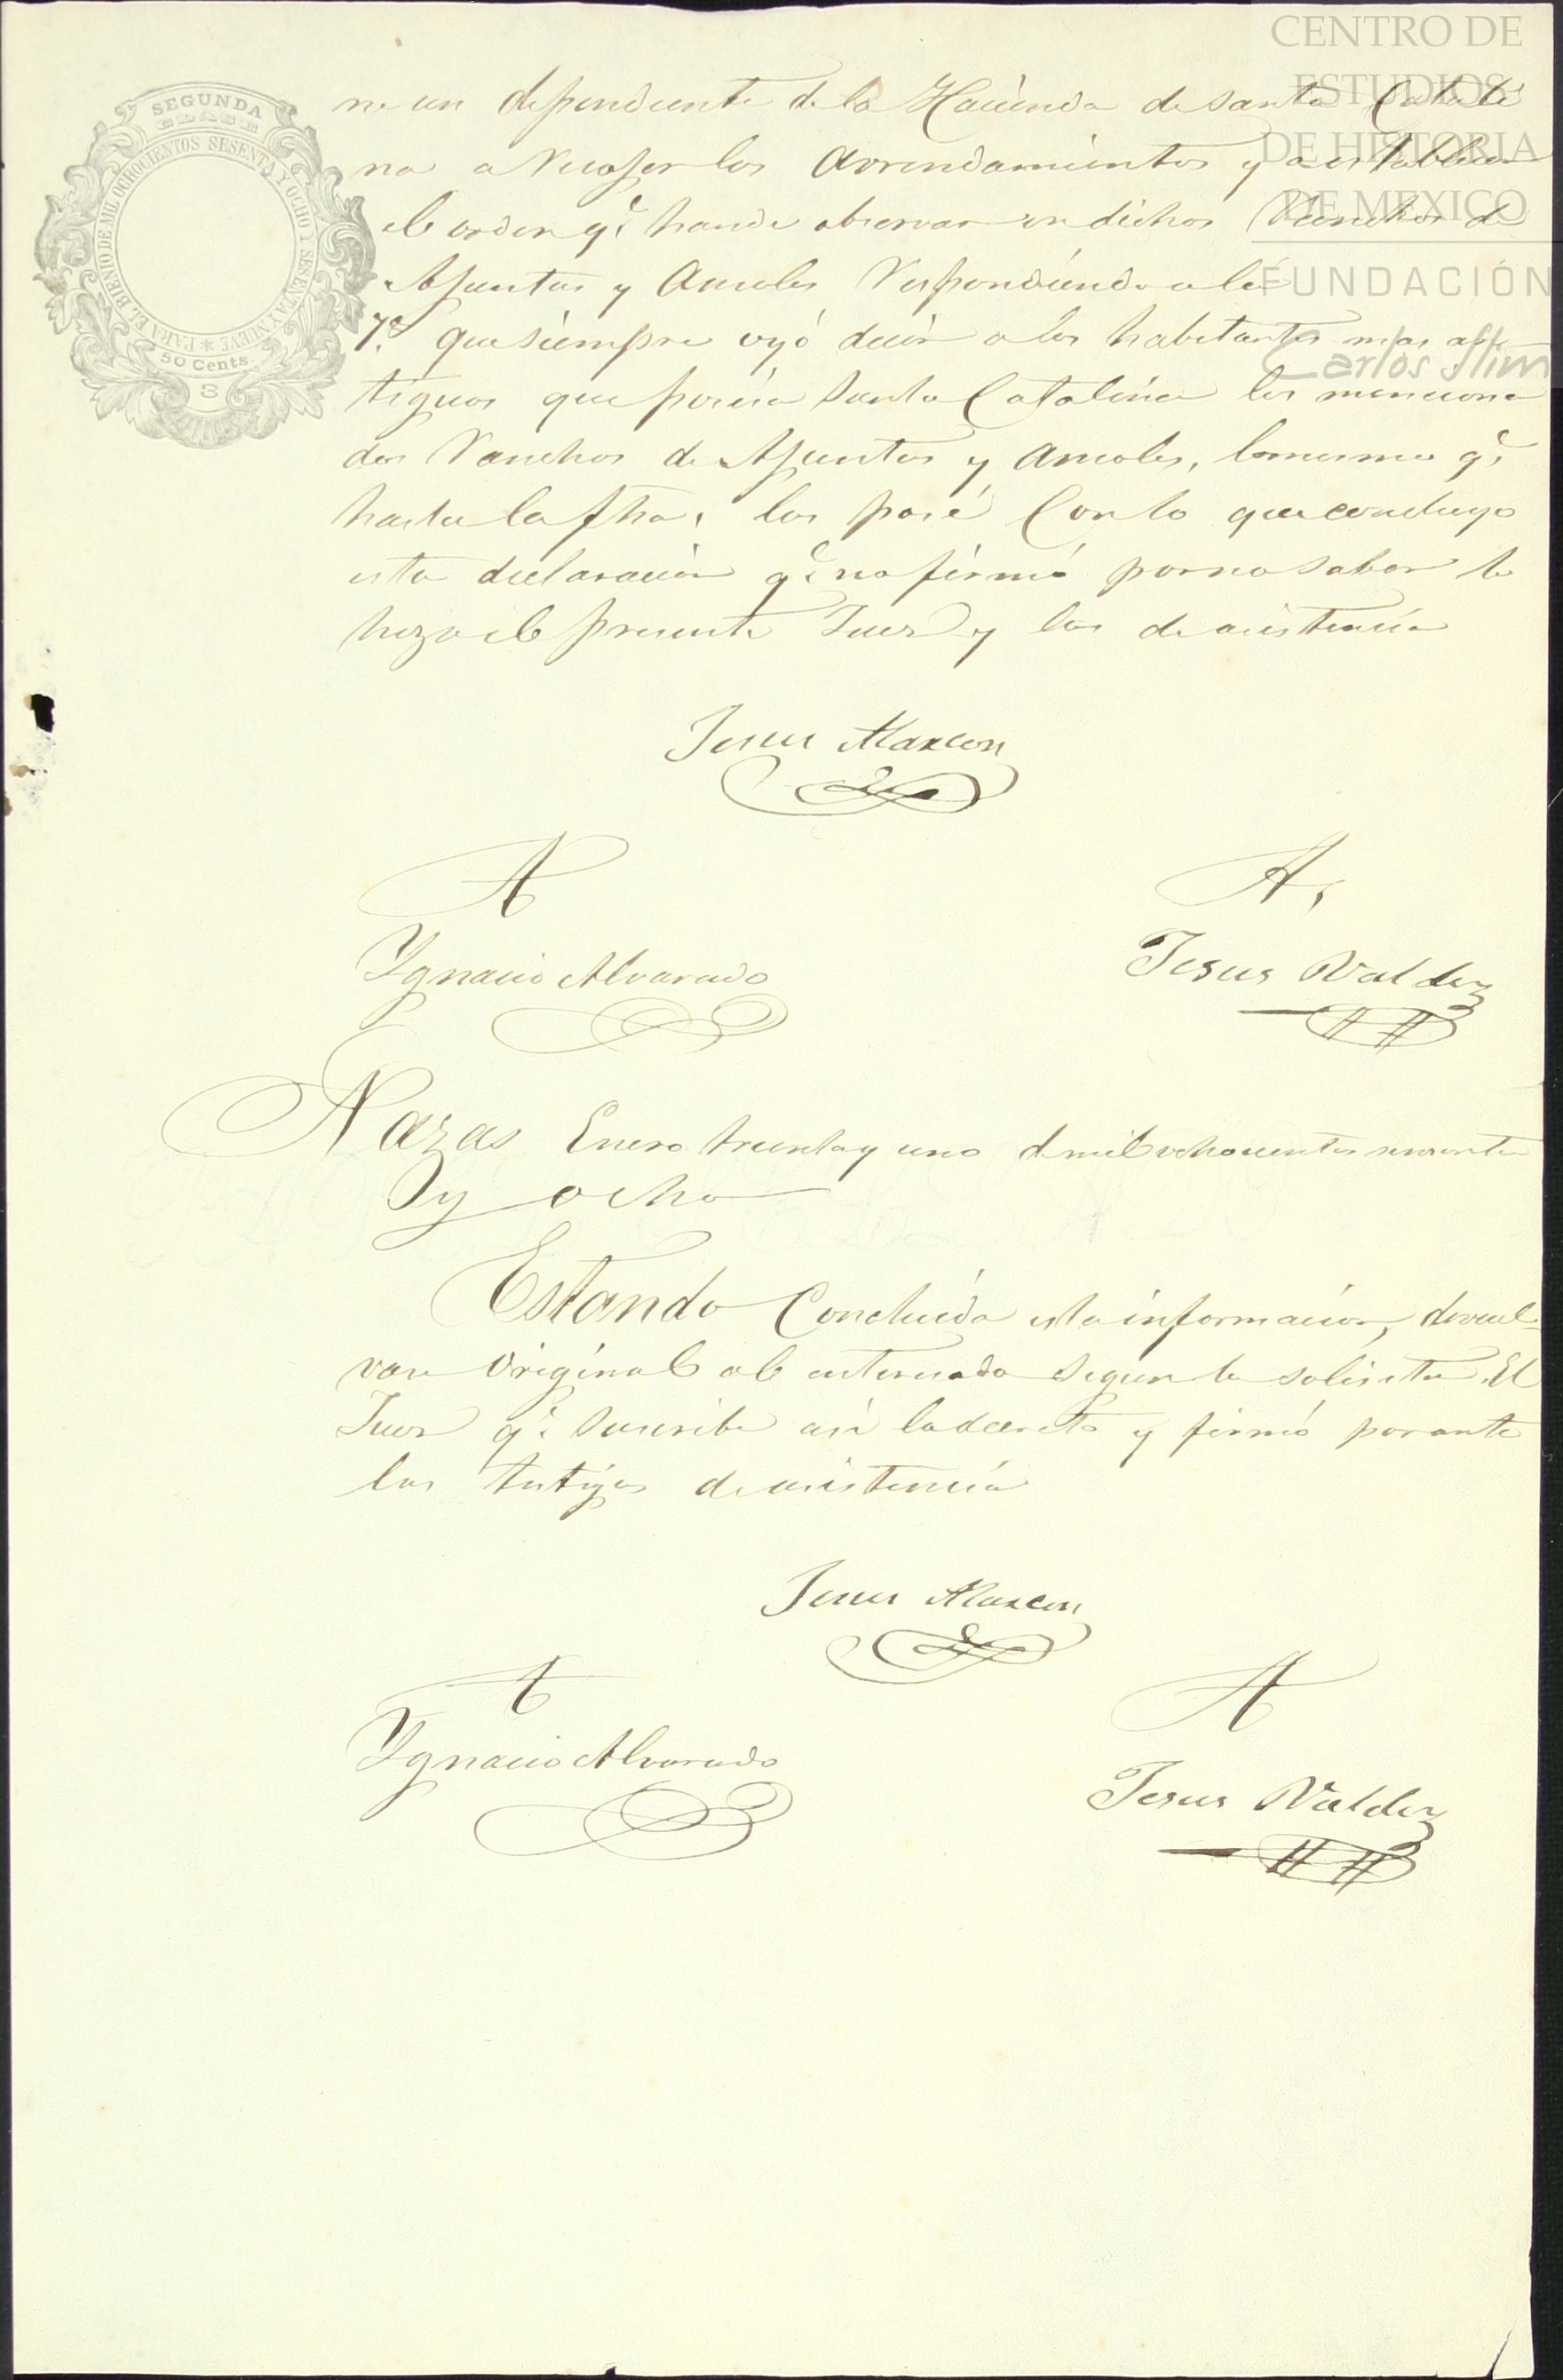 CENTRO DE
ESTUDIOS
DE HISTORIA
DE MEXICO
FUNDACIÓN
Carlos Slim
SEGUNDA
CLASE
PARA EL BIENIO DE MIL OCHOCIENTOS SESENTA Y OCHO Y SESENTA Y NUEVE
50 Cents.
ne un dependiente de la Hacienda de Santa Catali
na a recojer los arrendamientos y a establecer
el orden q.e han de observar en dichos Ranchos de
Ajuntas y Amoles Respondiendo a la
7.a que siempre oyó decir a los habitantes mas an
tiguos que poseia Santa Catalina los menciona
dos Ranchos de Ajuntas y Amoles, lo mismo q.e
hasta la fha, los posé Con lo que concluyo
esta declaracion q.e no firmó por no saber lo
hizo el presente Juez y los de asistencia
Jesus Alarcon
A
A,
Ygnacio Alvarado
Jesus Valdez
Nazas Enero treinta y uno de mil ochocientos sesenta
y ocho
Estando Concluida esta informacion, devuel-
vase Original al interesado segun lo solicita. El
Juez q.e Suscribe asi lo decreto y firmó por ante
los testigos de asistencia
Jesus Alarcon
A
A
Ygnacio Alvarado
Jesus Valdez